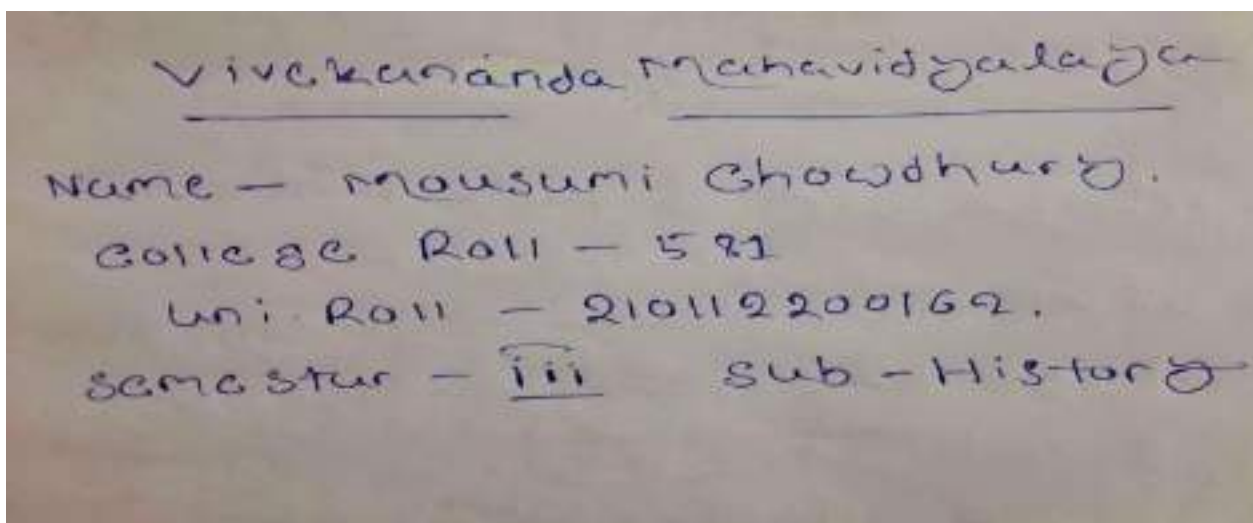 Vivekananda Mahavidyalaya
Name – Mousumi Chowdhury.
College Roll – 521
Uni Roll – 210112200162.
Semestur – iii Sub – History